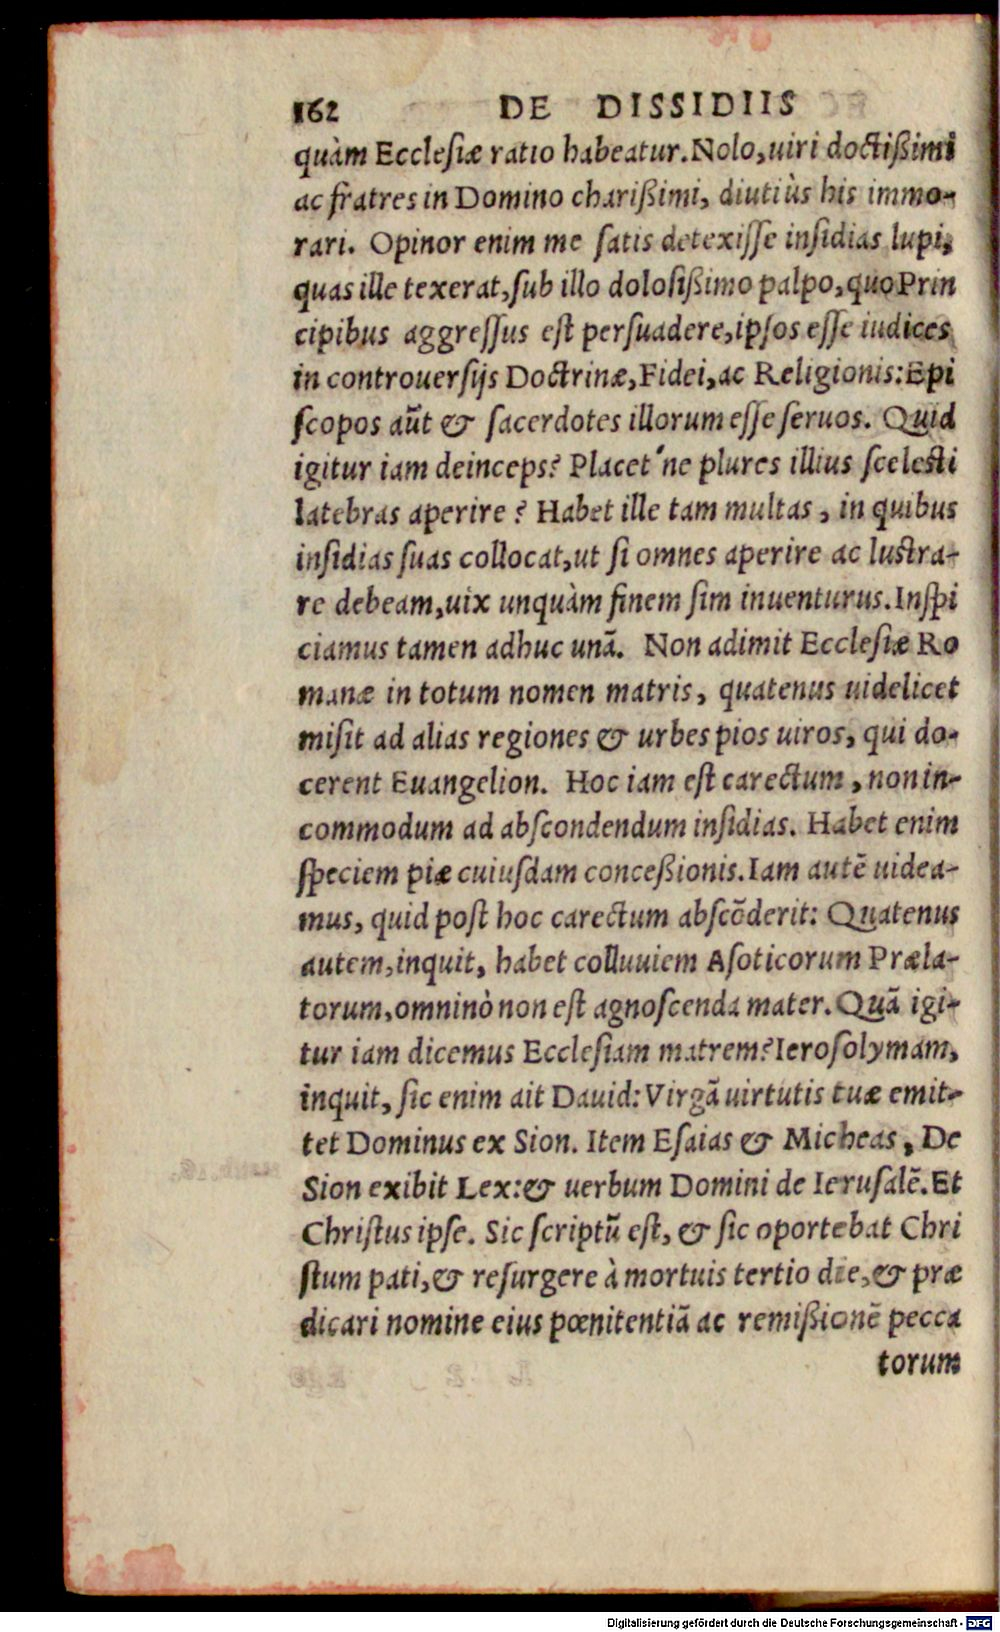 162 DE DISSIDIIS
quàm Ecclesiæ ratio habeatur. Nolo, uiri doctißimi
ac fratres in Domino charißimi, diutiùs his immo-
rari. Opinor enim me satis detexisse insidias lupi,
quas ille texerat, sub illo dolosißimo palpo, quo Prin
cipibus aggressus est persuadere, ipsos esse iudices
in controuersijs Doctrinæ, Fidei, ac Religionis: Epi
scopos aũt & sacerdotes illorum esse seruos. Quid
igitur iam deinceps? Placet'ne plures illius scelesti
latebras aperire? Habet ille tam multas, in quibus
insidias suas collocat, ut si omnes aperire ac lustra-
re debeam, uix unquàm finem sim inuenturus. Inspi
ciamus tamen adhuc unã. Non adimit Ecclesiæ Ro
manæ in totum nomen matris, quatenus uidelicet
misit ad alias regiones & urbes pios uiros, qui do-
cerent Euangelion. Hoc iam est carectum, non in-
commodum ad abscondendum insidias. Habet enim
speciem piæ cuiusdam conceßionis. Iam autē uidea-
mus, quid post hoc carectum abscōderit: Quatenus
autem, inquit, habet colluuiem Asoticorum Præla-
torum, omninò non est agnoscenda mater. Quã igi-
tur iam dicemus Ecclesiam matrem? Ierosolymam,
inquit, sic enim ait Dauid: Virgã uirtutis tuæ emit-
tet Dominus ex Sion. Item Esaias & Micheas, De
Sion exibit Lex: & uerbum Domini de Ierusalē. Et
Christus ipse. Sic scriptũ est, & sic oportebat Chri
stum pati, & resurgere à mortuis tertio die, & præ
dicari nomine eius pœnitentiã ac remißionē pecca
torum
Digitalisierung gefördert durch die Deutsche Forschungsgemeinschaft - DFG